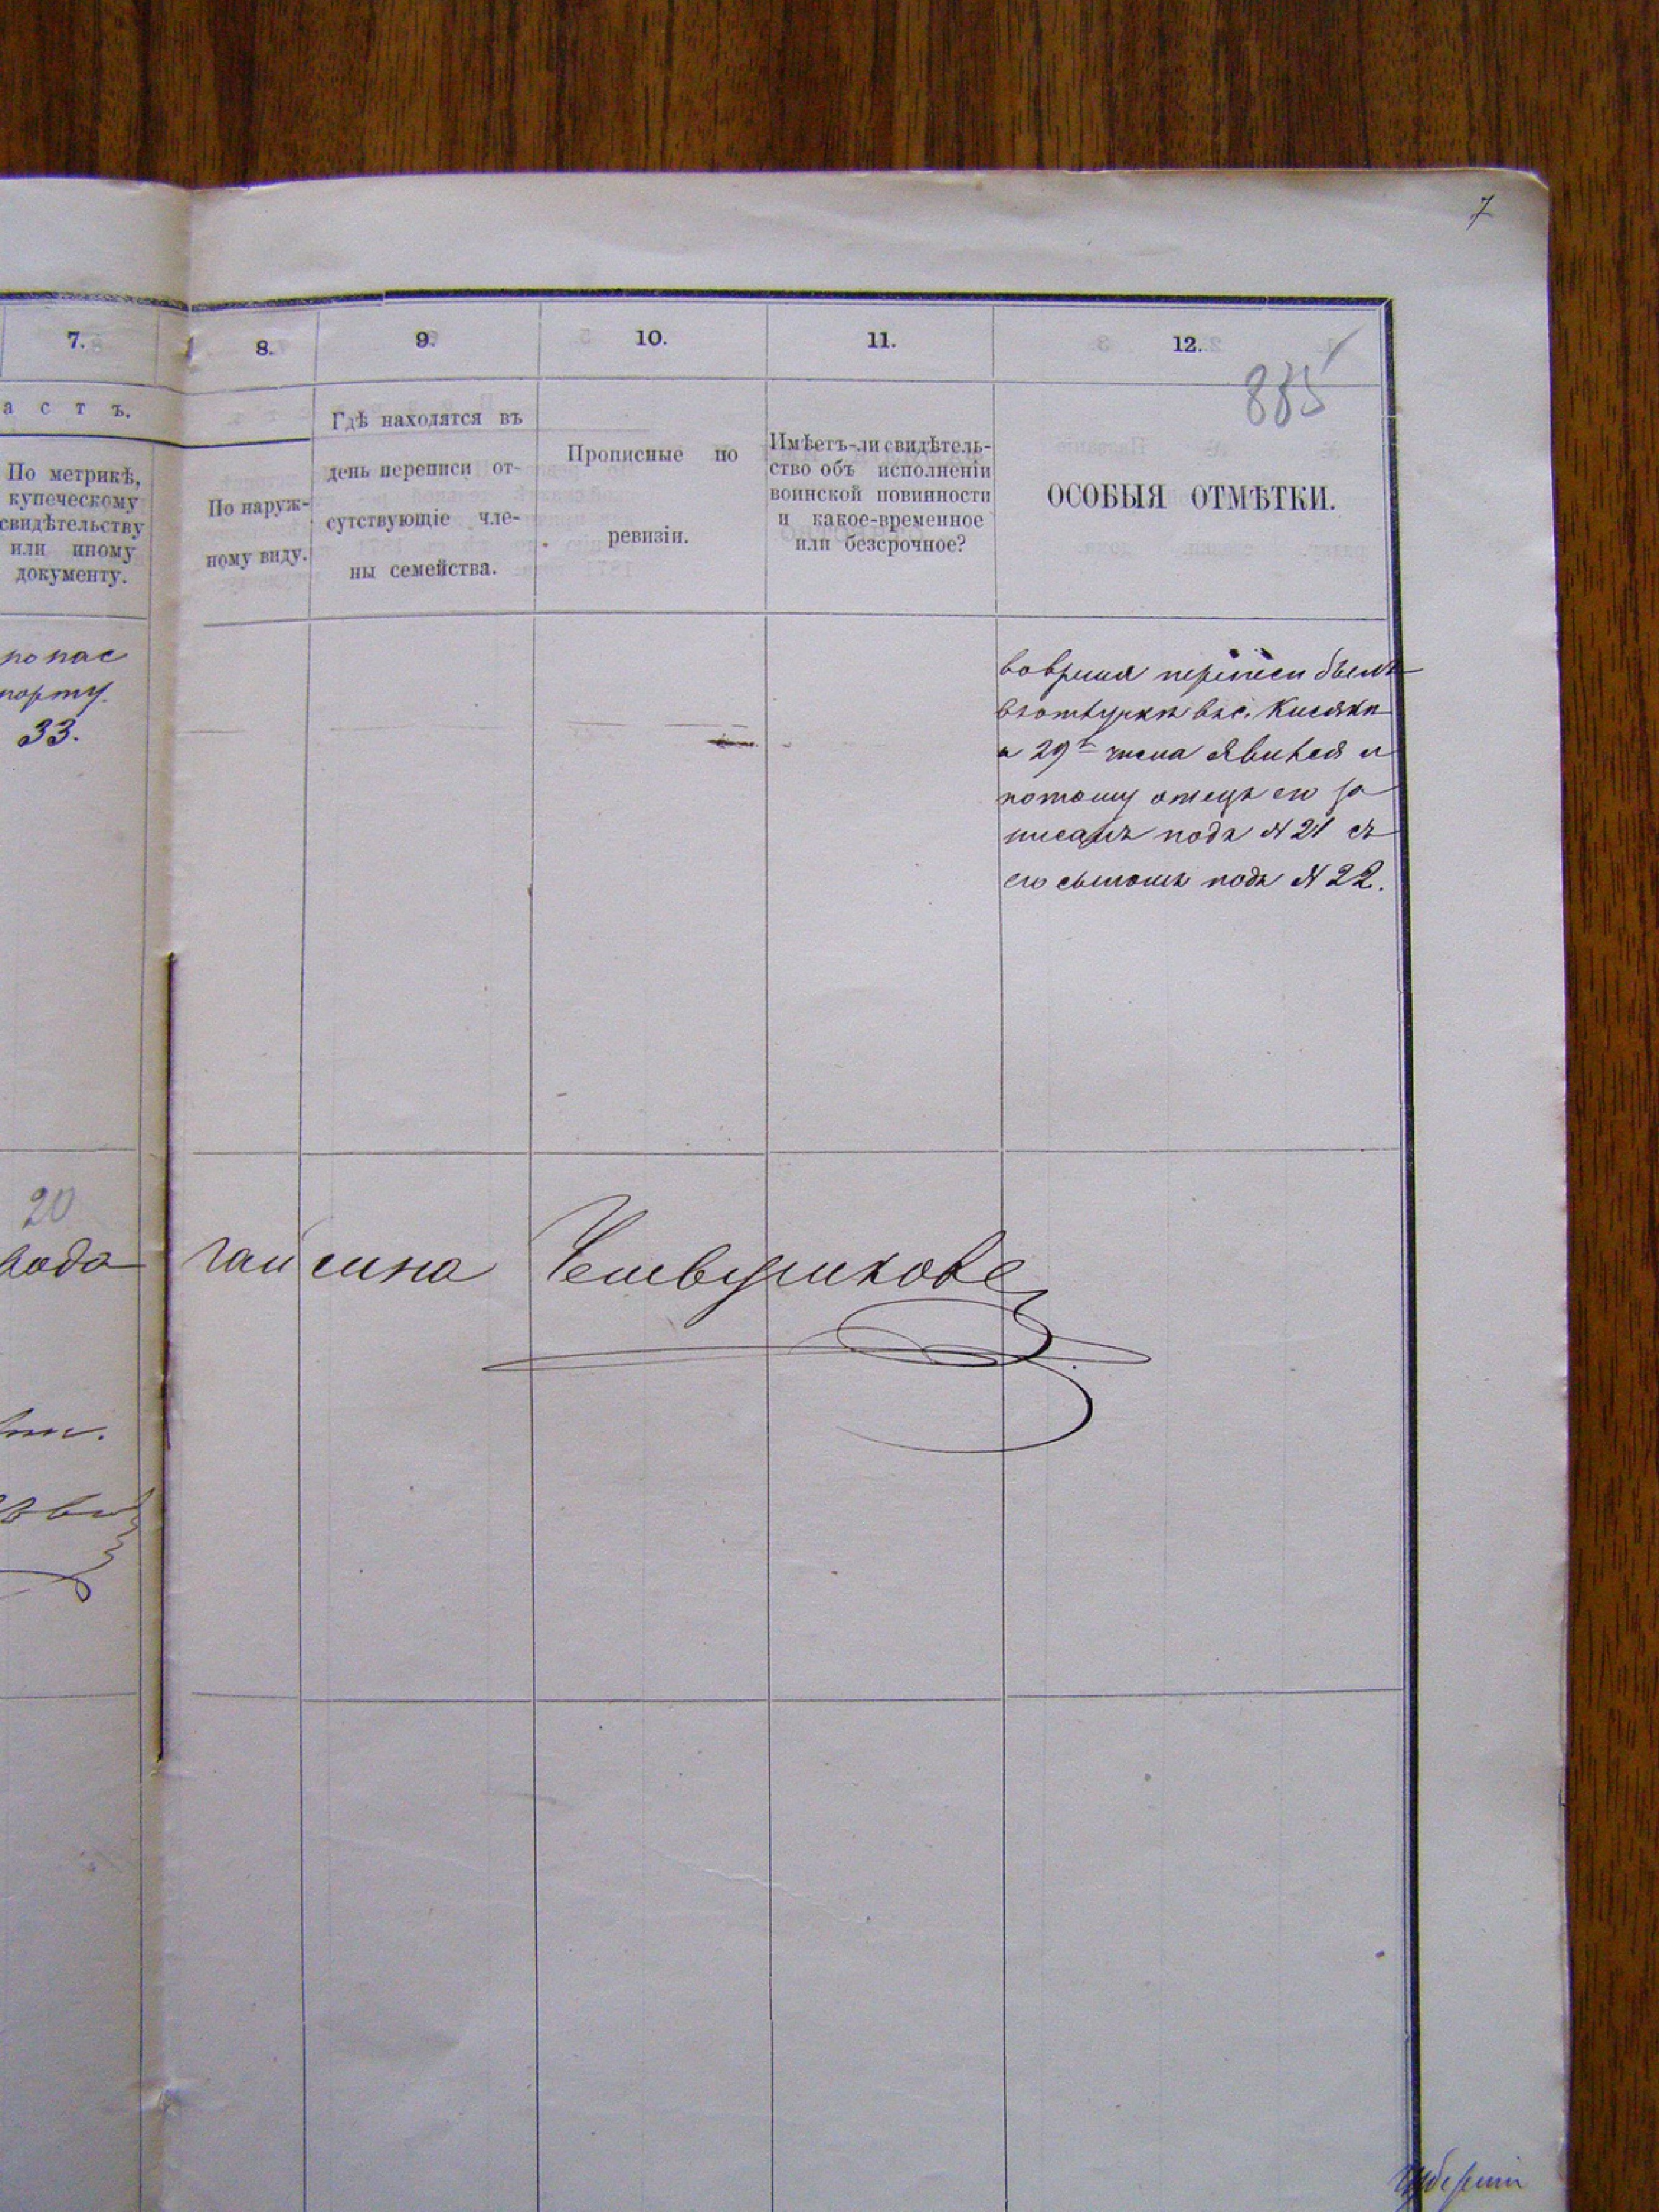 7
7.
8.
9.
10.
11.
12.
885
а с т ъ.
По метрикѣ,
купеческому
свидѣтельству
или иному
документу.
По наруж-
ному виду.
Гдѣ находятся въ
день переписи от-
сутствующіе чле-
ны семейства.
Прописные по
ревизіи.
Имѣетъ-ли свидѣтель-
ство объ исполненіи
воинской повинности
и какое-временное
или безсрочное?
ОСОБЫЯ ОТМѢТКИ.
по пас
порту.
33.
вовремя переписи былъ
въотлучкѣ въс.
а 29 числа явился и
потому отецъ его за
писанъ подъ № 21 съ
его сыномъ подъ № 22.
20
губерніи